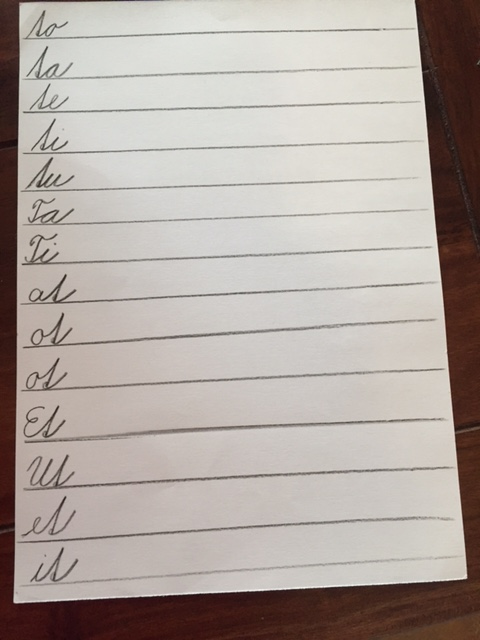 to
ta
te
ti
tu
Ta
Ti
at
ot
ot
Et
Ut
et
it